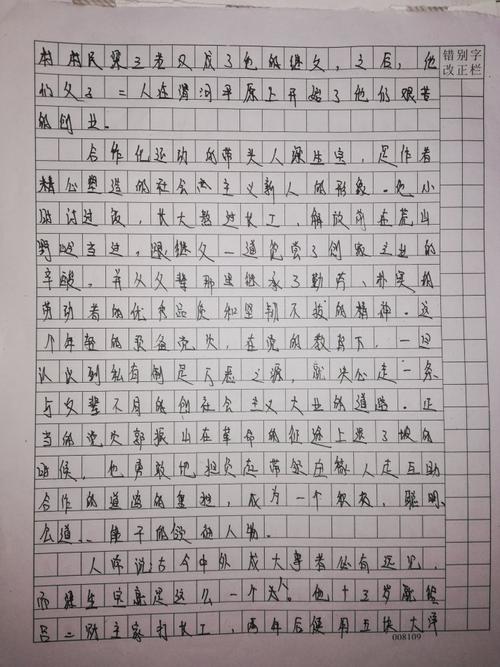 错别字
改正栏
村村民梁三老又成了他的继父，之后，他
们父子二人在渭河平原上开始了他们艰苦
的创业。
合作化运动的带头人梁生宝，是作者
精心塑造的社会主义新人的形象。他小
时讨过饭，长大熬过长工，解放前在荒山
野岭当过，跟继父一道饱尝了创家立业的
辛酸。并从父辈那里继承了勤劳、朴实的
劳动者的优秀品质和坚韧不拔的精神。这
个年轻的预备党员，在党的教育下，一旦
认识到私有制是万恶之源，就决心走一条
与父辈不同的创社会主义大业的道路。正
当的党员郭振山在革命的征途上退了坡的
时候，他勇敢地担负应带领庄稼人走互助
合作的道路的重担，成为一个积极、聪明、
公道、能干的领袖人物。
人常说：古今中外成大事者必有远见，
而梁生宝就是这么一个人。他十三岁就给
吕二财主家打长工，两年后便用五块大洋
008109